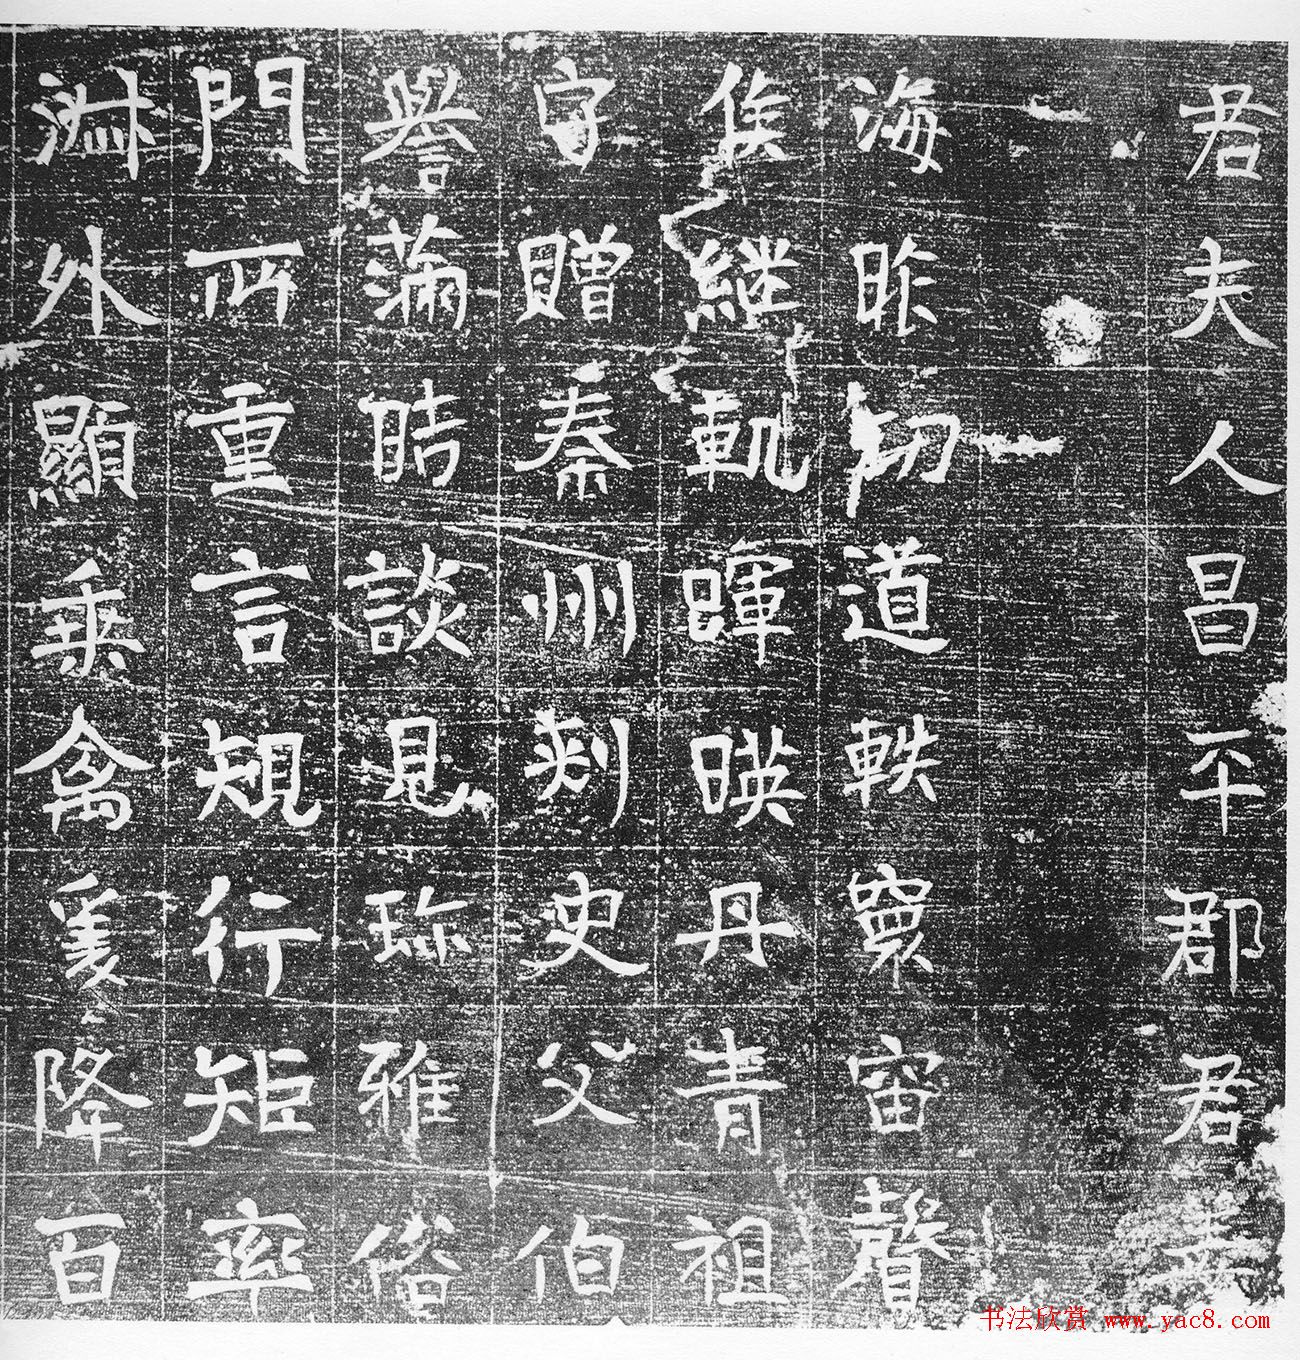 君夫人昌平郡君
海昨道軼寰宙聲
侯継軌暉暎丹青祖
守贈秦州刾史父伯
譽滿時談見珍雅俗
門所重言規行矩率
外顯乗禽爰降百
书法欣赏 www.yac8.com